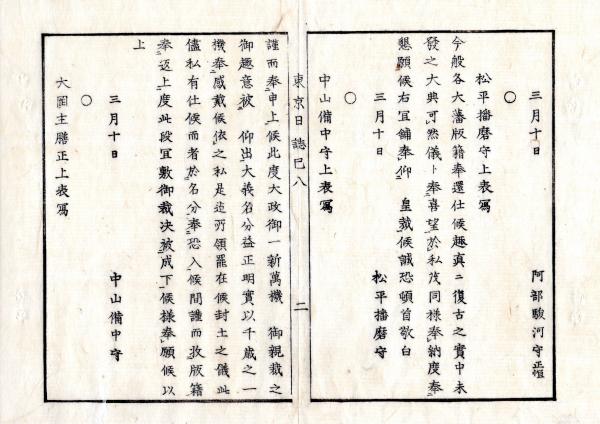 三月十日　阿部駿河守
○
松平播磨守上表寫
今般各大藩版籍奉還仕候趣真ニ復古之實中未
發之大典可然儀ト奉喜望於私茂同様奉納度奉
懇願候右宜鋪奉仰　皇裁候誠恐頓首敬白
三月十日　松平播磨守
○
中山備中守上表寫
東京日誌巳八　二
謹而奉申上候此度大政御一新萬機　御親裁之
御趣意被　仰出大義名分益正明實以千歳之一
機奉感戴候依之私是迄所領罷在候封土之儀此
儘私有仕候而者於名分奉恐入候間謹而版籍
奉返上度此段宜敷御裁决被成下候様奉願候以
上
三月十日　中山備中守
○
大岡主膳正上表寫